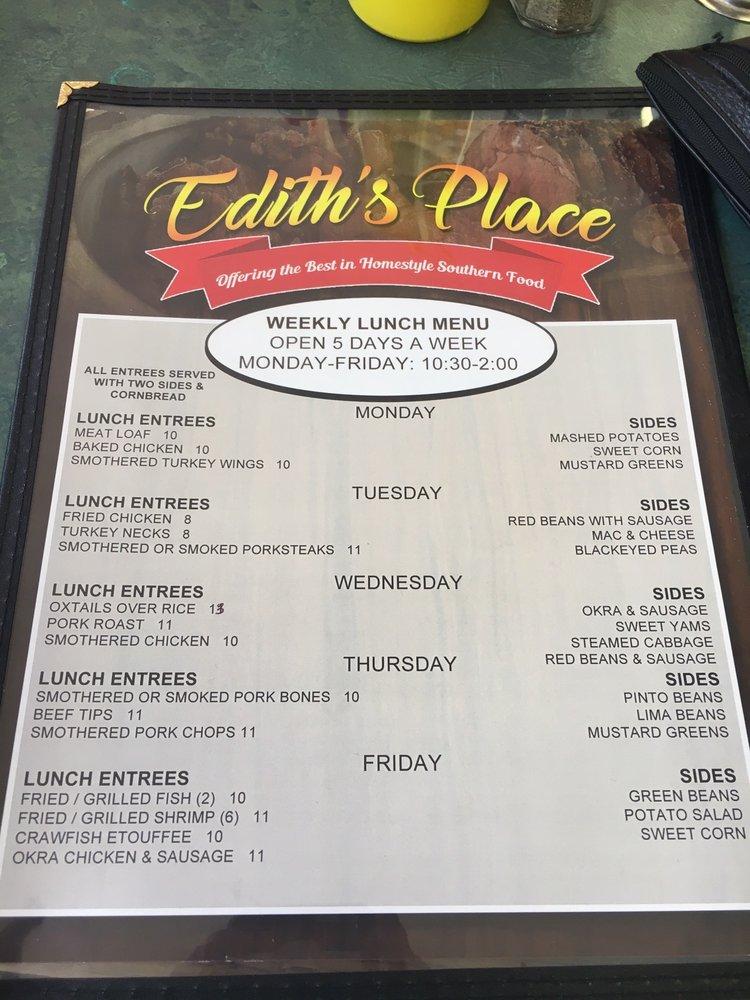 Edith's Place
Offering the Best in Homestyle Southern Food
WEEKLY LUNCH MENU
OPEN 5 DAYS A WEEK
MONDAY-FRIDAY: 10:30-2:00
ALL ENTREES SERVED
WITH TWO SIDES &
CORNBREAD
MONDAY
LUNCH ENTREES
MEAT LOAF 10
BAKED CHICKEN 10
SMOTHERED TURKEY WINGS 10
SIDES
MASHED POTATOES
SWEET CORN
MUSTARD GREENS
TUESDAY
LUNCH ENTREES
FRIED CHICKEN 8
TURKEY NECKS 8
SMOTHERED OR SMOKED PORKSTEAKS 11
SIDES
RED BEANS WITH SAUSAGE
MAC & CHEESE
BLACKEYED PEAS
WEDNESDAY
LUNCH ENTREES
OXTAILS OVER RICE 13
PORK ROAST 11
SMOTHERED CHICKEN 10
SIDES
OKRA & SAUSAGE
SWEET YAMS
STEAMED CABBAGE
RED BEANS & SAUSAGE
THURSDAY
LUNCH ENTREES
SMOTHERED OR SMOKED PORK BONES 10
BEEF TIPS 11
SMOTHERED PORK CHOPS 11
SIDES
PINTO BEANS
LIMA BEANS
MUSTARD GREENS
FRIDAY
LUNCH ENTREES
FRIED / GRILLED FISH (2) 10
FRIED / GRILLED SHRIMP (6) 11
CRAWFISH ETOUFFEE 10
OKRA CHICKEN & SAUSAGE 11
SIDES
GREEN BEANS
POTATO SALAD
SWEET CORN